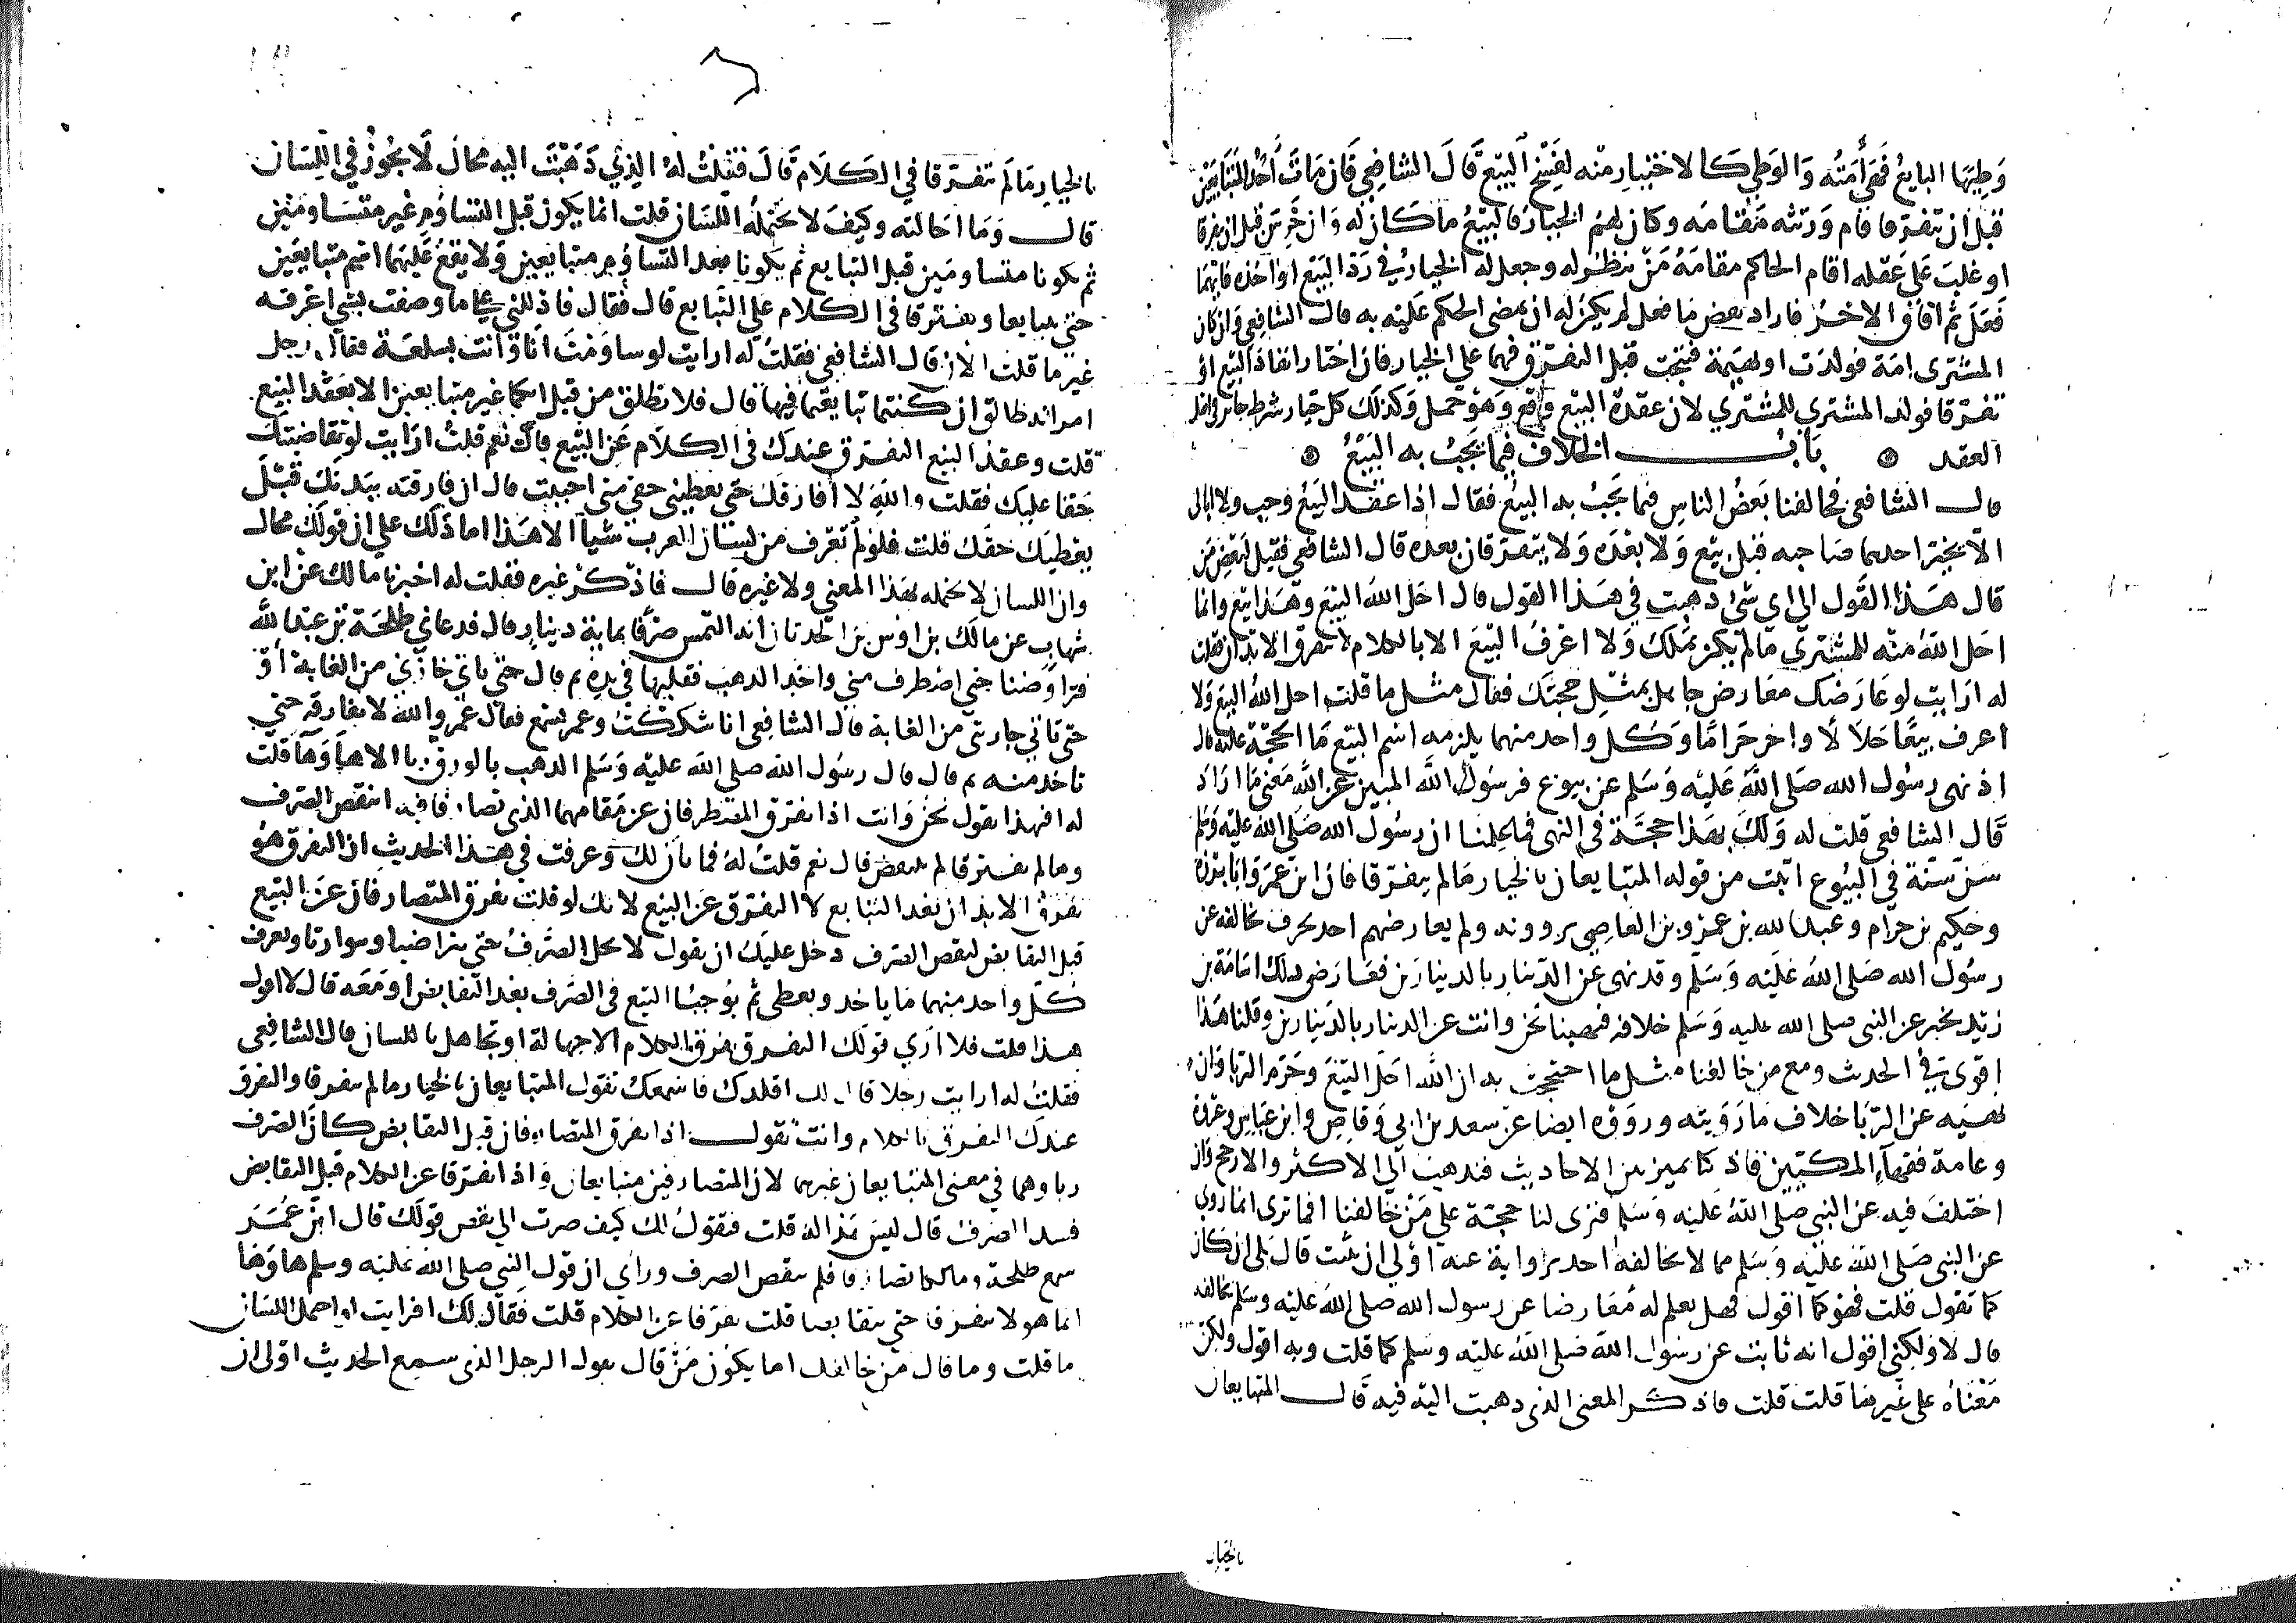 وطيها البايع فهي أمته والوطي كالاختيار منه لفسخ البيع قال الشافعي فان مات أحد المتبايعين
قبل ان يتفرقا قام ورثته مقامه وكان لهم الخيار في البيع ما كان له وان خرس قبل ان يتفرقا
او غلب على عقله اقام الحاكم مقامه من ينظر له وجعل له الخيار في رد البيع او اخذه فايهما
فعل ثم افاق الاخر فاراد نقض ما فعل لم يكن له ان يمضي الحكم عليه به قال الشافعي وان كان
المشتري امة فولدت او بهيمة فنتجت قبل التفرق فهما على الخيار فان اختارا انفاذ البيع او
تفرقا فولد المشتري للمشتري لان عقدة البيع وقع وهو حمل وكذلك كل خيار شرط جايز في اصل
العقد باب الخلاف فيما يجب به البيع
قال الشافعي فخالفنا بعض الناس فيما يجب به البيع فقال اذا عقد البيع وجب ولا ابالي
الا يخير احدهما صاحبه قبل بيع ولا بعده ولا يتفرقان بعده قال الشافعي فقيل لبعض من
قال هذا القول الى اي شئ ذهبت في هذا القول قال احل الله البيع وهذا بيع وانما
احل الله منه للمشتري ما لم يكن يملك ولا اعرف البيع الا بالكلام لا بتفرق الابدان فقلت
له ارايت لو عارضك معارض جاهل بمثل حجتك فقال مثل ما قلت احل الله البيع ولا
اعرف بيعا حلالا واخر حراما وكل واحد منهما يلزمه اسم البيع ما الحجة عليه قال
اذ نهى رسول الله صلى الله عليه وسلم عن بيوع فرسول الله المبين عن الله معنى ما اراد
قال الشافعي قلت له ولك بهذا حجة في النهي فما علمنا ان رسول الله صلى الله عليه وسلم
سن سنة في البيوع اثبت من قوله المتبايعان بالخيار ما لم يتفرقا فان ابن عمر وابا برزة
وحكيم بن حزام وعبد الله بن عمرو بن العاصي يروونه ولم يعارضهم احد بحرف يخالفه عن
رسول الله صلى الله عليه وسلم وقد نهى عن الدينار بالدينارين فعارض ذلك اسامة بن
زيد بخبر عن النبي صلى الله عليه وسلم خلافه فنهينا نحن وانت عن الدينار بالدينارين وقلنا هذا
اقوى في الحديث ومع من خالفنا مثل ما احتججت به ان الله احل البيع وحرم الربا وان
نهيه عن الربا خلاف ما رويته ورووه ايضا عن سعد بن ابي وقاص وابن عباس وعروة
وعامة فقهاء المكيين فاذ كنا نميز بين الاحاديث فنذهب الى الاكثر والارجح وان
اختلف فيه عن النبي صلى الله عليه وسلم فنرى لنا حجة على من خالفنا افما ترى انما روي
عن النبي صلى الله عليه وسلم مما لا يخالفه احد برواية عنه اولى ان يثبت قال بلى ان كان
كما تقول قلت فهو كما اقول فهل يعلم له معارضا عن رسول الله صلى الله عليه وسلم يخالفه
قال لا ولكني اقول انه ثابت عن رسول الله صلى الله عليه وسلم كما قلت وبه اقول ولكن
معناه على غير ما قلت قلت فاذكر المعنى الذي ذهبت اليه فيه قال المتبايعان
بالخيار
بالخيار ما لم يتفرقا في الكلام قال فقلت له الذي ذهبت اليه محال لا يجوز في اللسان
قال وما احالته وكيف لا يحتمله اللسان قلت انما يكون قبل التساوم غير متساومين
ثم يكونا متساومين قبل التبايع ثم يكونا بعد التساوم متبايعين ولا يقع عليهما اسم متبايعين
حتى يتبايعا ويفترقا في الكلام على التبايع قال فقال فادللني على ما وصفت بشي اعرفه
غير ما قلت الان قال الشافعي فقلت له ارايت لو ساومت انا وانت بسلعة فقال رجل
امراته طالق ان كنتما تبايعتما فيها قال فلا تطلق من قبل انكما غير متبايعين الا بعقد البيع
قلت وعقد البيع التفرق عندك في الكلام عن البيع قال نعم قلت ارايت لو تقاضيتك
حقا عليك فقلت والله لا افارقك حتى تعطيني حقي متى احنث قال ان فارقته ببدنك قبل
يعطيك حقك قلت فلو لم تعرف من لسان العرب شيا الا هذا اما دلك على ان قولك محال
وان اللسان لا يحتمله بهذا المعنى ولا غيره قال فاذكر غيره فقلت له اخبرنا مالك عن ابن
شهاب عن مالك بن اوس بن الحدثان انه التمس صرفا بماية دينار قال فدعاني طلحة بن عبد الله
فتراوضنا حتى اصطرف مني واخذ الذهب فقلبها في يده ثم قال حتى ياتي خازني من الغابة او
حتى تاتي جاريتي من الغابة قال الشافعي انا شككت وعمر يسمع فقال عمر والله لا تفارقه حتى
تاخذ منه ثم قال قال رسول الله صلى الله عليه وسلم الذهب بالورق ربا الا ها وها قلت
له افبهذا نقول نحن وانت اذا تفرق المصطرفان عن مقامهما الذي تصارفا فيه انتقض الصرف
وما لم يفترقا لم ينتقض قال نعم قلت له فما بان لك وعرفت في هذا الحديث ان التفرق هو
تفرق الابدان بعد التبايع لا التفرق عن البيع لانك لو قلت تفرق المتصارفان عن البيع
قبل التقابض لبعض الصرف دخل عليك ان يقول لا يحل الصرف حتى يتراضيا ويتوازنا ويعرف
كل واحد منهما ما ياخذ ويعطي ثم يوجبا البيع في الصرف بعد التقابض او معه قال لا اقول
هذا قلت فلا ارى قولك التفرق تفرق الكلام الا جهالة او تجاهل باللسان قال الشافعي
فقلت له ارايت رجلا قال لك اقلدك فاسمعك تقول المتبايعان بالخيار ما لم يتفرقا والتفرق
عندك التفرق بالكلام وانت تقول اذا تفرق المتصارفان قبل التقابض كان الصرف
ربا وهما في معنى المتبايعان غيرهما لان المتصارفين متبايعان واذا تفرقا عن الكلام قبل التقابض
فسد الصرف قال ليس هذا له قلت فيقول لك كيف صرت الى نقض قولك قال ابن عمر
سمع طلحة ومالكا تصارفا فلم ينقض الصرف وراى ان قول النبي صلى الله عليه وسلم ها وها
انما هو لا يتفرقا حتى يتقابضا قلت تفرقا عن الكلام قلت فقال لك افرايت لو احتمل اللسان
ما قلت وما قال من خالفك اما يكون من قال بقول الرجل الذي سمع الحديث اولى ان